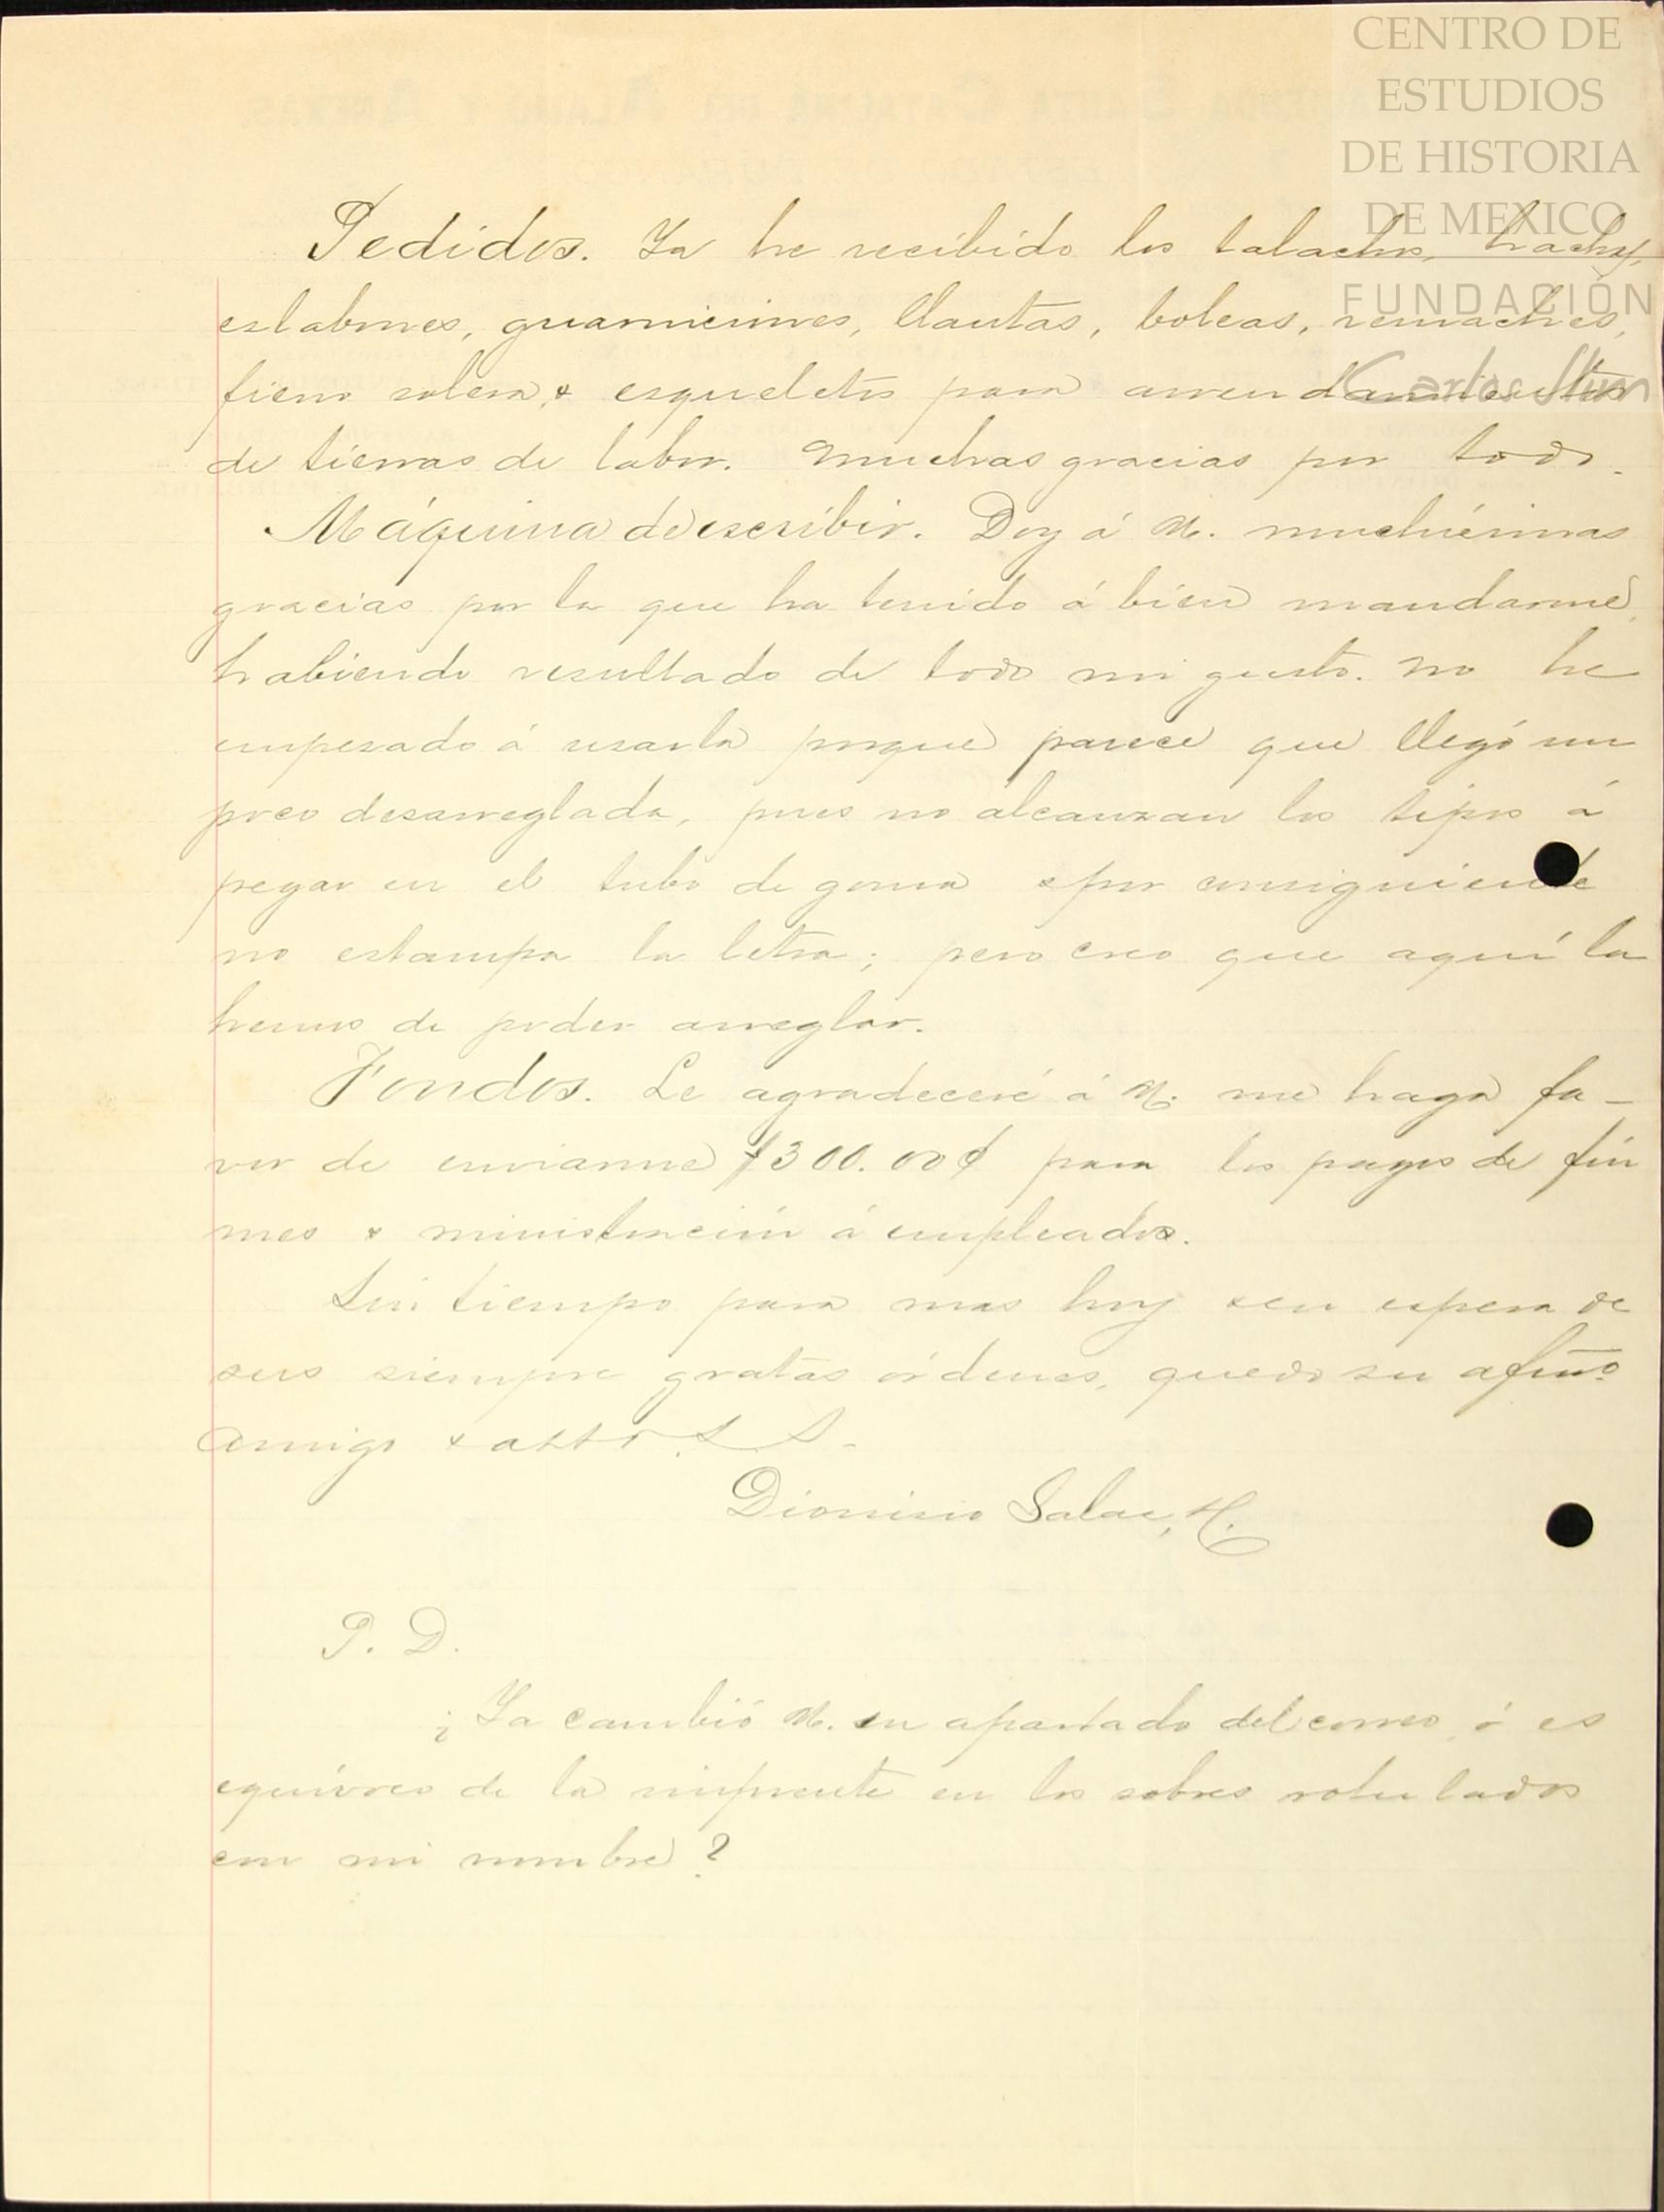 CENTRO DE
ESTUDIOS
DE HISTORIA
DE MEXICO
FUNDACIÓN
Carlos Slim
Pedidos. Ya he recibido los talachos, hachas,
eslabones, guarniciones, llantas, boleas, remaches,
fierro solera, & esqueletos para arrendamientos
de tierras de labor. Muchas gracias por todo.
Máquina de escribir. Doy á U. muchísimas
gracias por la que ha tenido á bien mandarme,
habiendo resultado de todo mi gusto. No he
empesado á usarla porque parece que llegó un
poco desarreglada, pues no alcanzan los tipos á
pegar en el tubo de goma & por consiguiente
no estampa la letra; pero creo que aquí la
hemos de poder arreglar.
Fondos. Le agradeceré á U. me haga fa-
vor de enviarme $300.00¢ para los pagos de fin
mes & ministración á empleados.
Sin tiempo para mas hoy & en espera de
sus siempre gratas órdenes, quedo su afmo.
amigo & atto. S. S.
Dionisio Salas, H.
P. D.
¿Ya cambió U. su apartado del correo, ó es
equívoco de la imprenta en los sobres rotulados
con mi nombre?